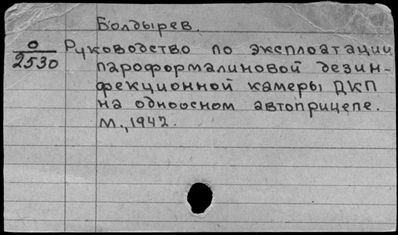 Болдырев.
О/2530 Руководство по эксплоатации
пароформалиновой дезин-
фекционной камеры ДКП
на одноосном автоприцепе.
М., 1942.